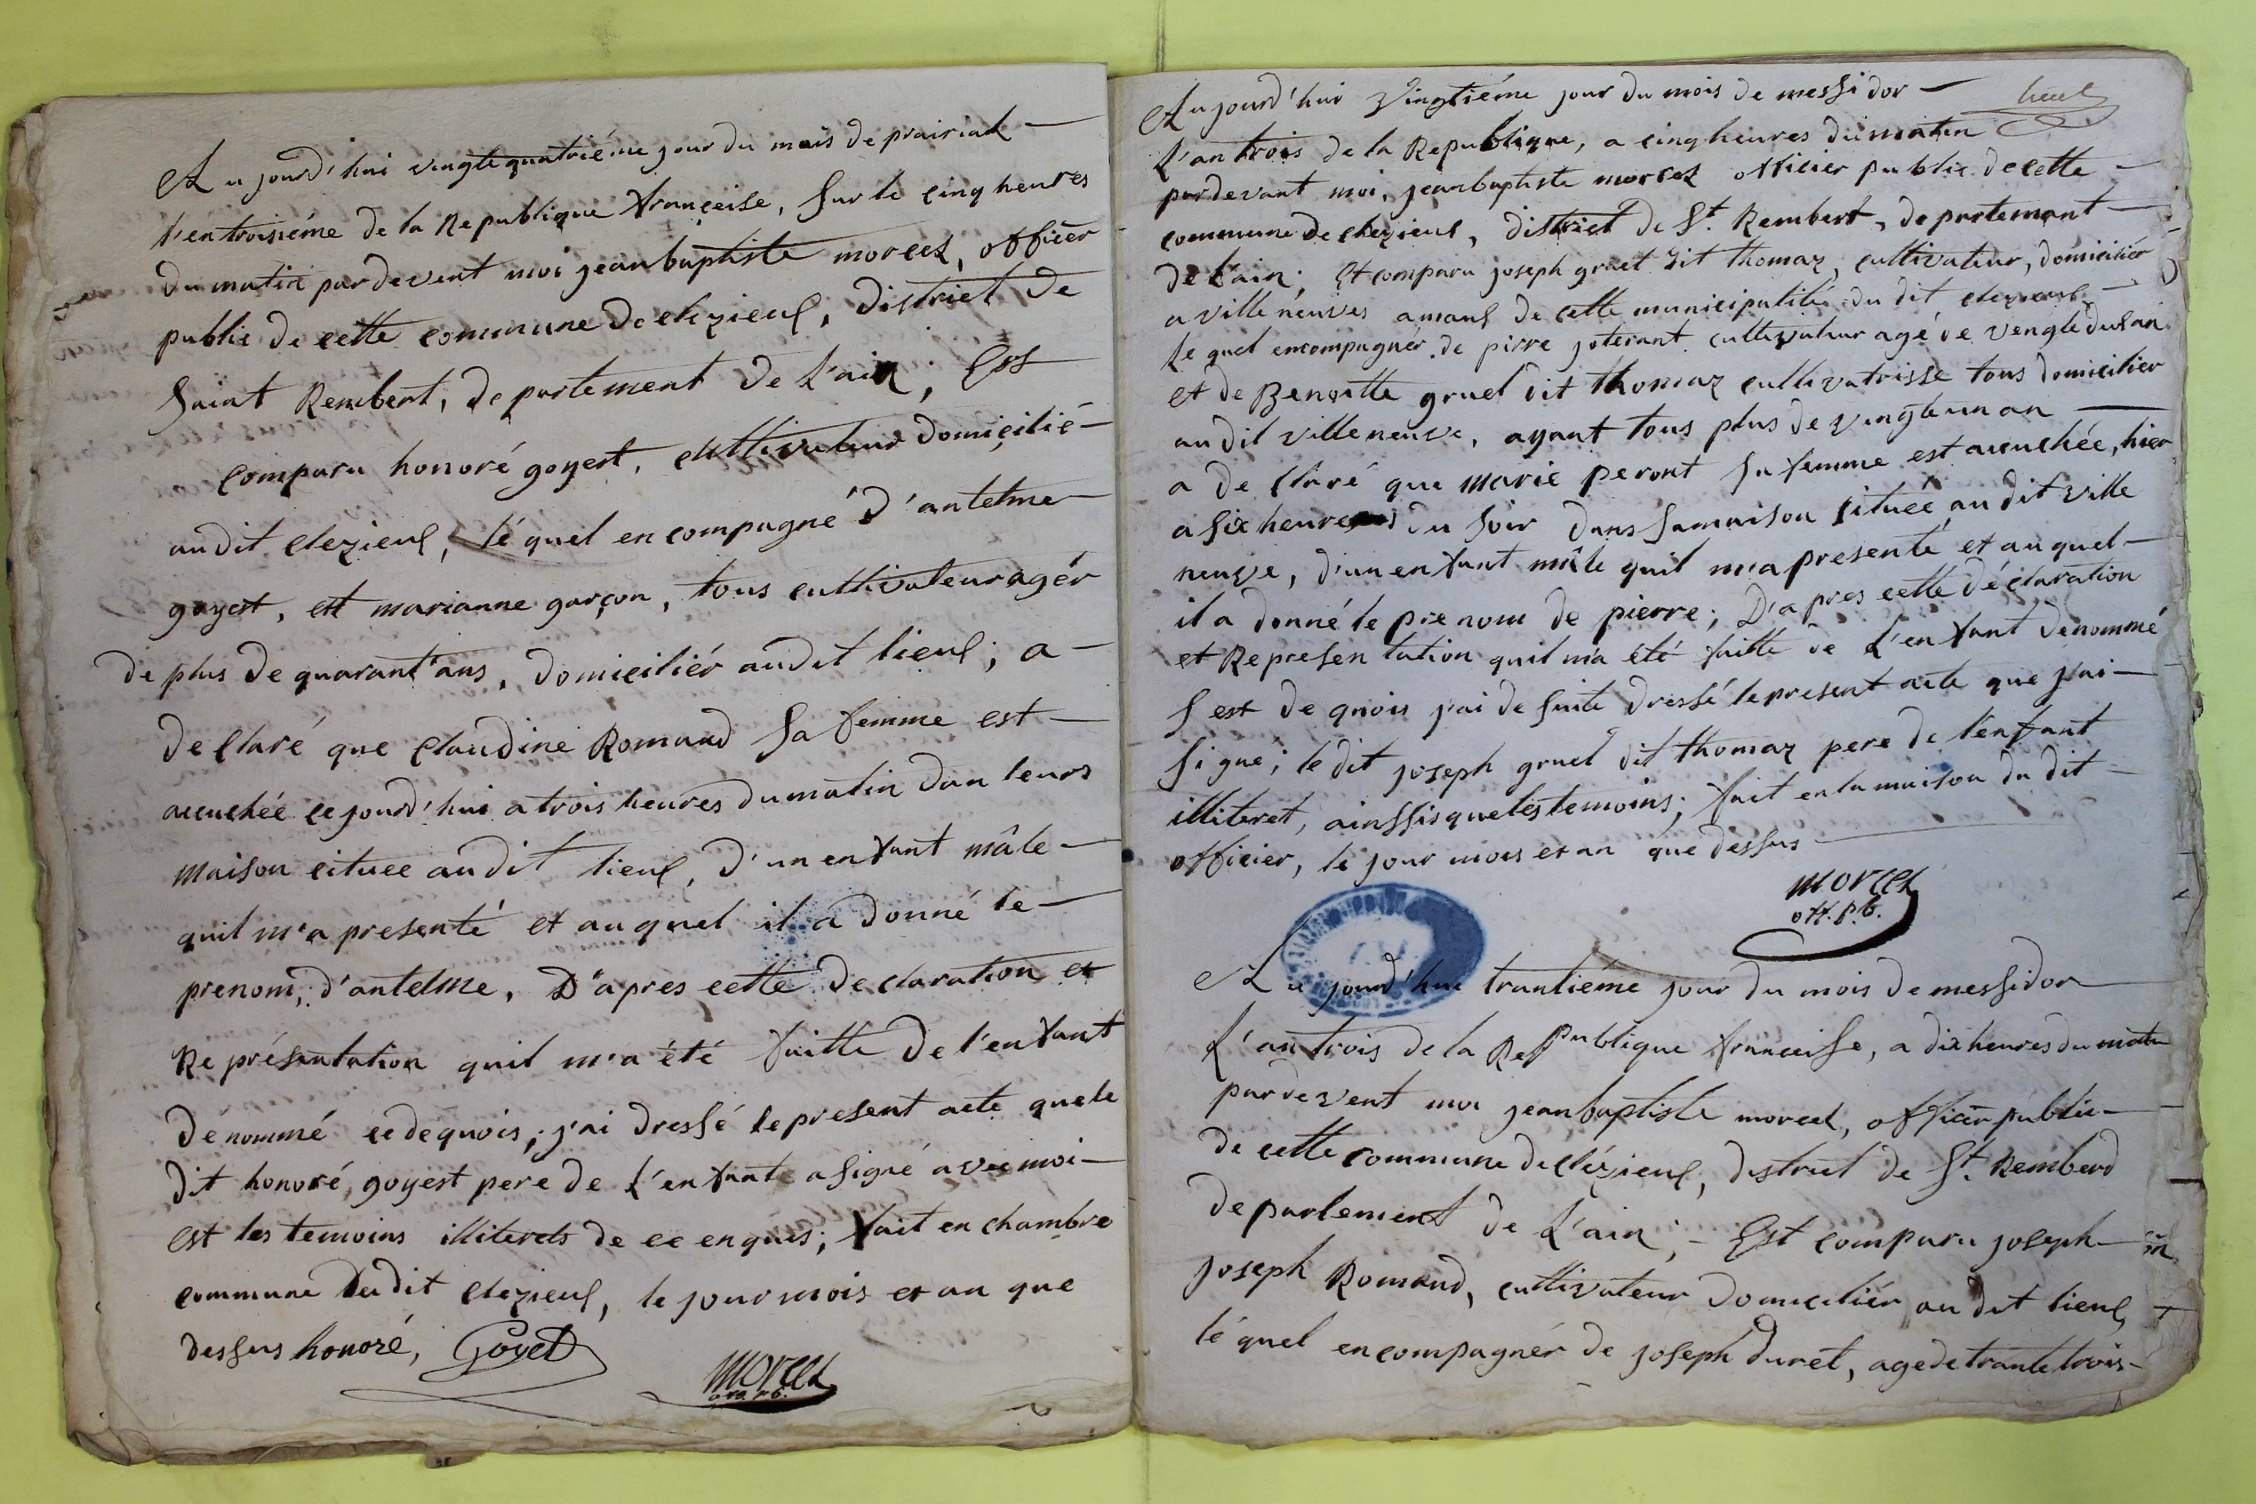 Au jourd'hui vingtequatriéme jour du mois de prairial
l'en troisiéme de la Republique françeise, sur le cinq heures
du matin pardevent moi jeanbaptiste morcel, officier
public de cette commune de clezieul, district de
saint Rembert, departement de l'ain, Est
comparu honoré goyest, cultivateur domicilié
audit clezieul, léquel encompagné d'antelme
goyest, est marianne garçon, tous cultivateur agér
de plus de quarant'ans, domiciliér audit lieul; a
declaré que claudine Romand sa femme est
accuchée ce jourd'hui a trois heures du matin dan leurs
maison cituee audit lieul, d'un enfant mâle
quil m'a presenté et au quel il a donné le
prenom, d'antelme, D'apres cette declaration et
Représentation quil m'a été faitte de l'enfant
dénommé ce dequois, j'ai dressé le present acte que le
dit honoré, goyest pere de l'enfant a signé avec moi
est les temoins illiterets de ce enquis; fait en chambre
commune dudit clezieul, le jour mois et an que
dessus honoré, Goyet
morcel
off. pb.
Aujourd'hui vingtiéme jour du mois de messidor
l'an trois de la Republique, a cinq heures du matin
pardevant moi, jeanbaptiste morcel officier public de cette
commune de clezieul, district de St. Rembert, departemant
de l'ain; Et comparu joseph gruet dit thomaz, cultivateur, domiciliér
a ville neuves amaul de cette municipalité du dit clezieul
le quel encompagnér de pirre joterant cultivateur agé de
et de Benoitte gruel dit thomaz cultivatrisse tous domicilier
au dit villeneuve, ayant tous plus de vingteun an
a declaré que marie peront sa femme est accuchée, hier
a six heures du soir dans sa maison situeé au dit ville
neuve, d'un enfant mâle quil m'a presente et au quel
il a donné le prenom de pierre; D'apres cette déclaration
et Representation quil m'a été faitte de l'enfant denommé
s est de quois j'ai de suite dressé le present acte que j'ai
signé; le dit joseph gruel dit thomaz pere de l'enfant
illiteret, ainssis que les temoins; fait en la maison du dit
officier, le jour mois et an que dessus
morcel
off. p.b.
Au jourd'hui trantiéme jour du mois de messidor
l'an trois de la Republique franceisse, a dix heures du matin
pardevent moi jeanbaptiste morcel, officier public
de cette commune de clézieul, destriel de St. Remberd
departement de l'ain; Est comparu joseph
joseph Romand, cultivateur domiciliér au dit lieul,
léquel encompagnér de joseph duret, age de trante trois